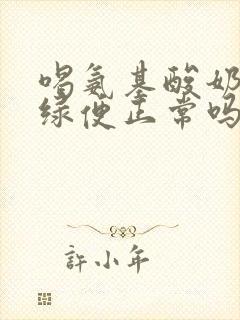 喝氨基酸奶
绿便正常吗
許小年